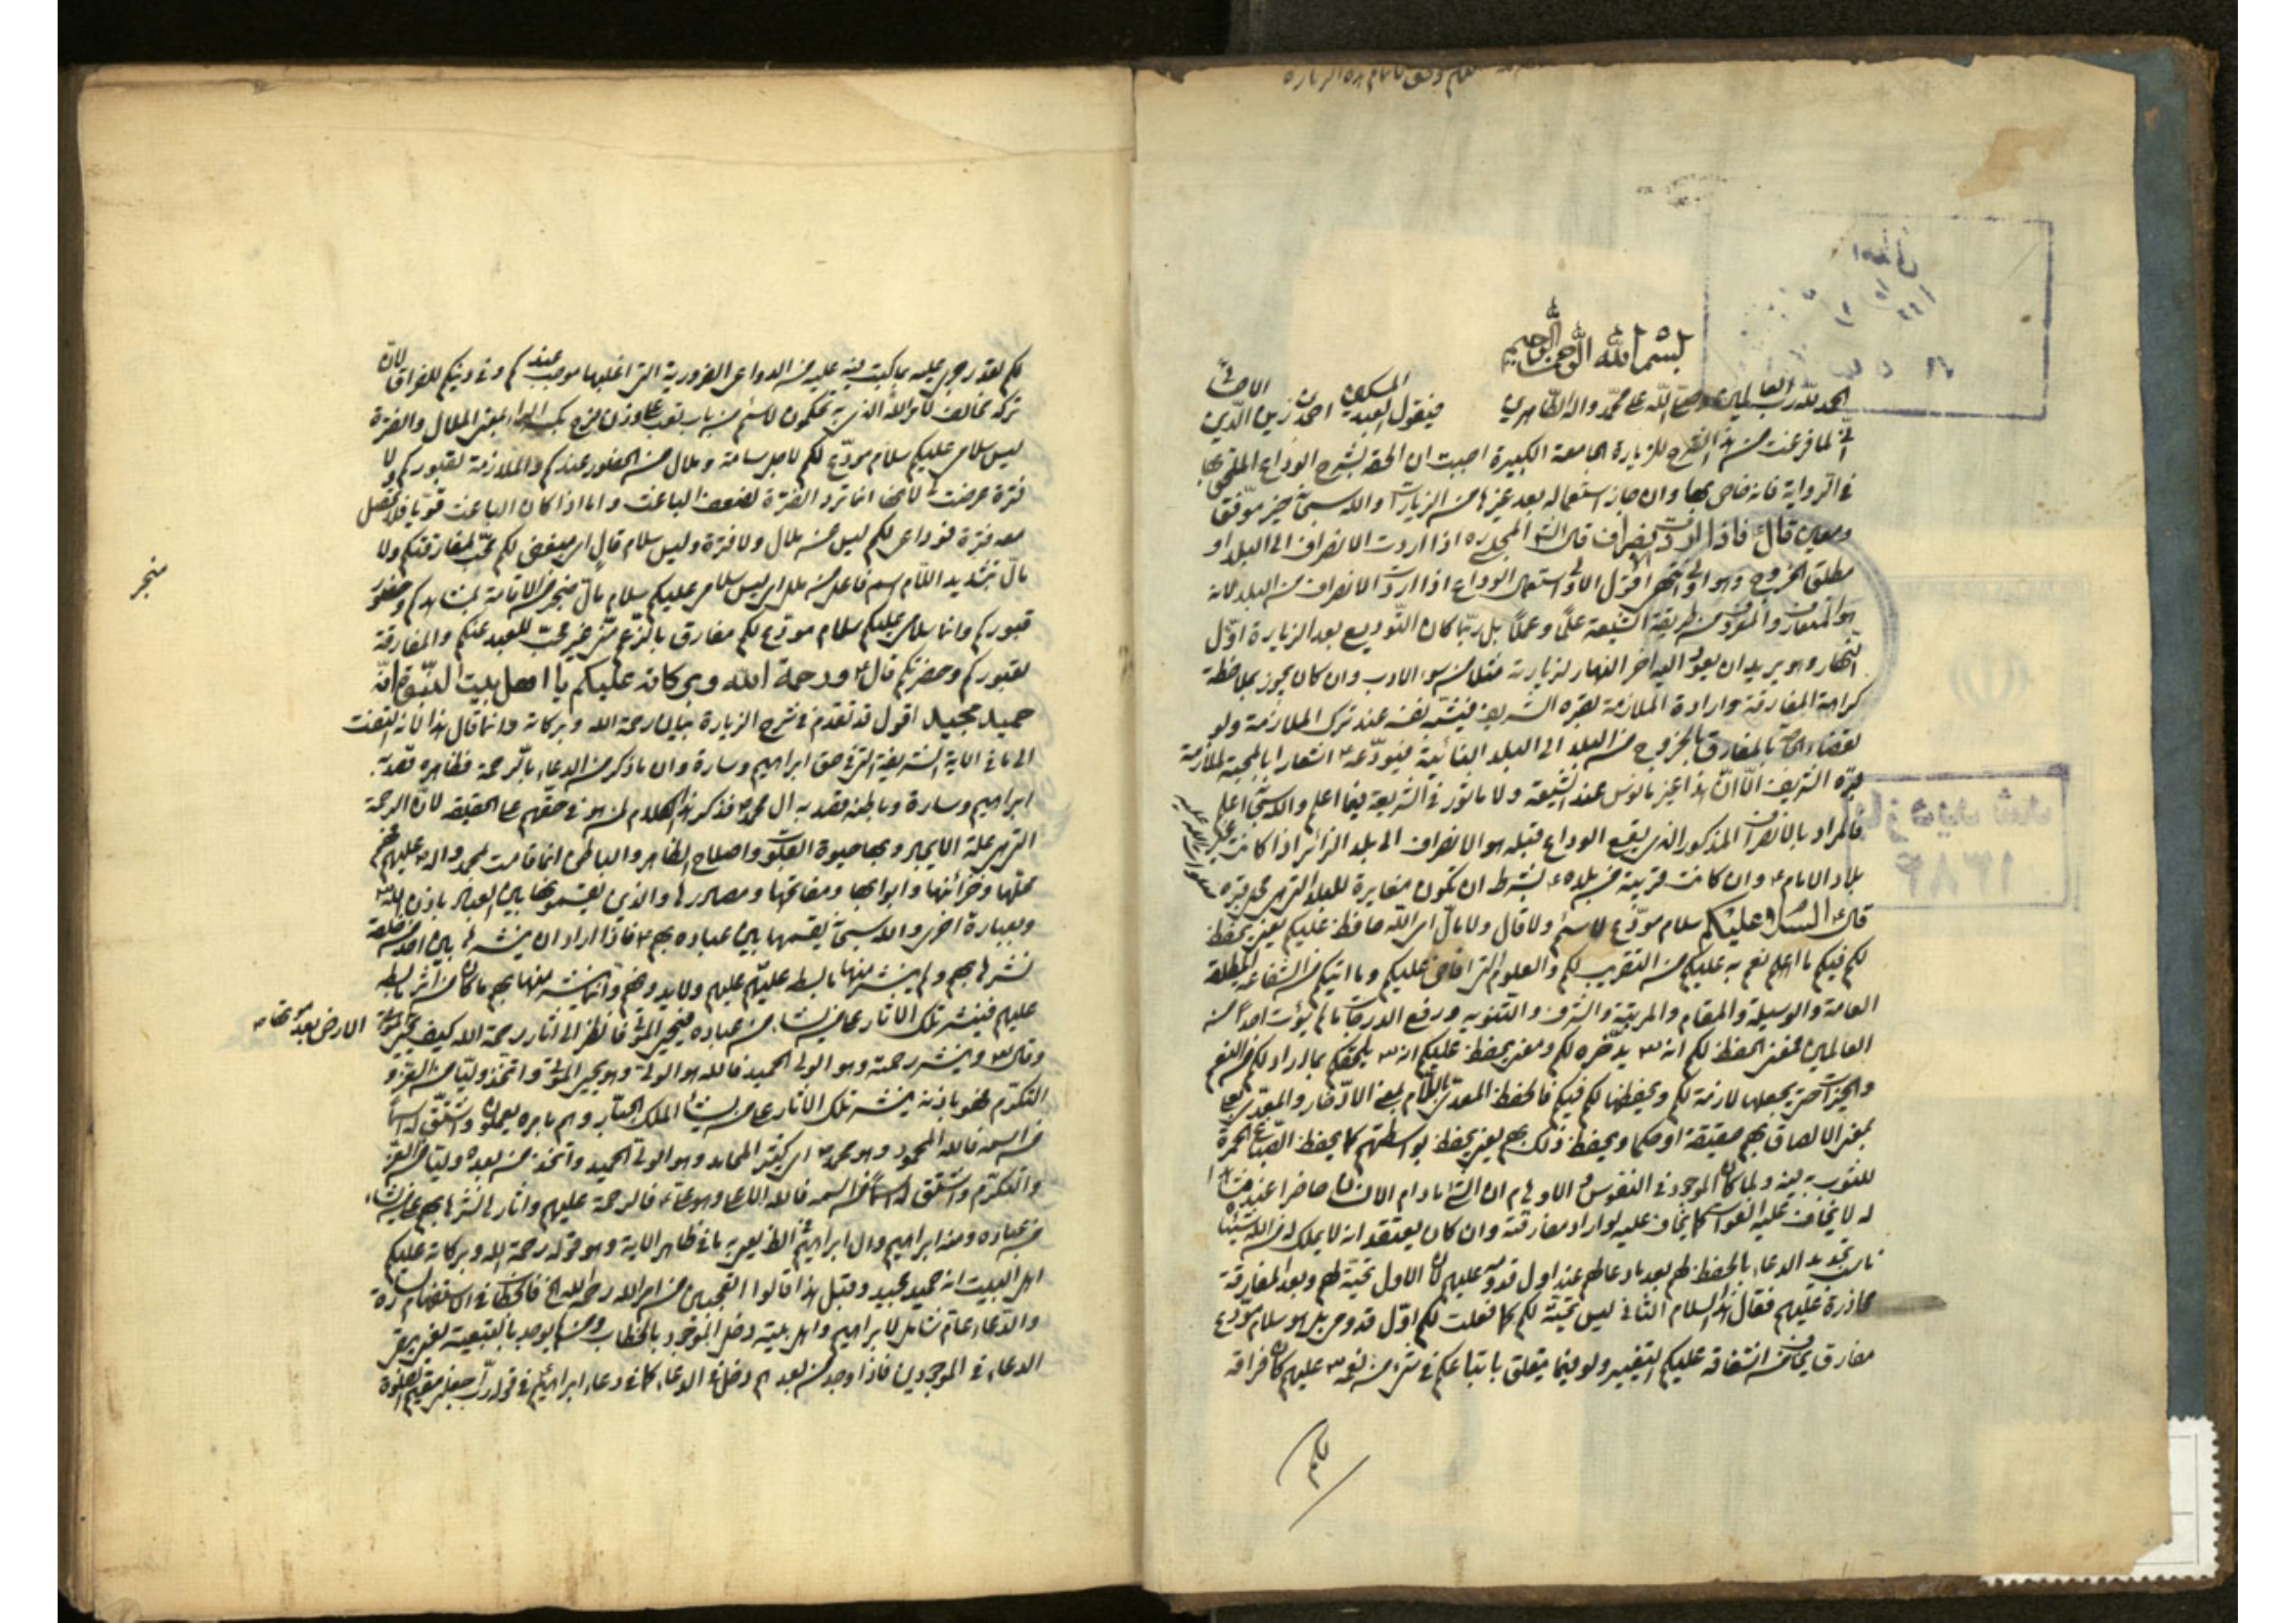 بسم الله الرحمن الرحيم
الحمد لله رب العالمين وصلى الله على محمد واله الطاهرين فيقول العبد المسكين احمد بن زين الدين الاحسائي
اني لما فرغت من هذا الشرح للزيارة الجامعة الكبيرة احببت ان الحقه بشرح الوداع الملحق بها
في الرواية فانه خاص بها وان جاز استعماله بعد غيرها من الزيارات والله سبحانه خير موفق
ومعين قال فاذا اردت الانصراف قال الشارح المجلسي ره اذا اردت الانصراف الى البلد او
مطلق الخروج وهو اولى انتهى اقول الاولى استعمال الوداع اذا اردت الانصراف من البلد لانه
هو المتعارف والمعروف من طريقة الشيعة علما وعملا بل ربما كان التوديع بعد الزيارة اول
النهار وهو يريد ان يعود اليه اخر النهار لزيارته مثلا من سوء الادب وان كان يجوز بملاحظة
كراهة المفارقة وارادة الملازمة لقبره الشريف عند ترك الملازمة ولو
بالمفارق بالخروج من البلد الى البلد النائية فيودعه اشعارا بالمحبة لملازمة
قبره الشريف الا ان هذا غير مانوس عند الشيعة ولا ماثور في الشريعة فيما اعلم والله سبحانه اعلم
فالمراد بالانصراف المذكور الذي يقع الوداع قبله هو الانصراف الى بلد الزائر اذا كانت غير
بلاد الامام وان كانت قريبة من بلده بشرط ان تكون مغايرة للبلد التي هي محل قبره
قال السلام عليكم سلام مودع لا سئم ولا قال ولا مال اي الله حافظ عليكم يعني يحفظ
لكم فيكم ما انعم به عليكم من التقريب لكم والعلوم التي افاض عليكم وما اتيكم من الشفاعة المطلقة
العامة والوسيلة والمقام والمرتبة والشرف والتنويه ورفع الدرجات ما لم يؤت احدا من
العالمين فمعنى الحفظ لكم انه يدخره لكم ومعنى يحفظ عليكم انه يلحقكم بما اراد لكم من النعم
والخيرات حتى يجعلها لازمة لكم ويحفظها لكم فيكم فالحفظ المعدى باللام بمعنى الادخار والمعدى بعلى
بمعنى الالصاق بهم حقيقة او حكما ويحفظ ذلك بهم يعني يحفظ بواسطتهم كما يحفظ الصباغ الحمرة
للثوب به فيه ولما كان الموجود في النفوس والاوهام ان الشيء مادام الانسان حاضرا عنده
له لا يخاف عليه الفوات كما يخاف عليه لو اراد مفارقته وان كان يعتقد انه لا يملك له من الله شيئا
ناسب تجديد الدعاء بالحفظ لهم بعد ما دعا لهم عند اول قدومه عليهم لان الاول تحية لهم وبعد المفارقة
محاذرة عليهم فقال هذا السلام الثاني ليس تحية لكم كما فعلت لكم اول قدومي بل هو سلام مودع
مفارق يخاف من اشفاقه عليكم التغيير ولو فيما يتعلق باتباعكم في شيء من نعمه عليهم لان فراقه
لكم
تركه مخالف لامر الله الذي به تحكمون لا سئم من باب تعب
ليس سلامي عليكم سلام مودع لكم لاجل سامة وملال من الحضور عندكم والملازمة لقبوركم ولا
فترة عرضت لانها انما ترد الفترة لضعف الباعث واما اذا كان الباعث قويا فلا تحصل
معه فترة فوداعي لكم ليس من ملال ولا فترة وليس سلام قال اي مبغض لكم محب لمفارقتكم ولا
مال بتشديد اللام اسم فاعل من ملل اي ليس سلامي عليكم سلام مال منجر من الاقامة بمشاهدكم وحضور
قبوركم وانما سلامي عليكم سلام مودع لكم مفارق بالرغم مني غير محب للبعد عنكم والمفارقة
لقبوركم وحضرتكم قال ورحمة الله وبركاته عليكم يا اهل بيت النبوة انه
حميد مجيد اقول قد تقدم في شرح الزيارة بيان رحمة الله وبركاته وانما قال هذا لانه التفت
الى ما في الاية الشريفة التي في حق ابراهيم وسارة وان ما ذكر من الدعاء بالرحمة فظاهره قصد به
ابراهيم وسارة وباطنه قصد به ال محمد فذكر هذا الكلام لمن هو في حقهم على الحقيقة لان الرحمة
التي هي علة الايجاد وبها حيوة القلوب واصلاح الظاهر والباطن انما قامت بمحمد واله فهم
محلها وخزائنها وابوابها ومفاتحها ومصادرها والذين يقسمونها بين العباد باذن الله
وبعبارة اخرى والله سبحانه يقسمها بين عباده بهم فاذا اراد ان ينشرها بين احد من خلقه
نشرها بهم
عليهم فينشر تلك الاثار على من يشاء من عباده فيحيي الموتى فانظر الى اثار رحمة الله كيف يحيي
وقال وينشر رحمته وهو الولي الحميد فالله هو الولي وهو يحيي الموتى واتخذ وليا من العز و
التكرم فهو باذنه ينشر تلك الاثار على من يشاء الملك الجبار وهم بامره يعملون واشتق له اسما
من اسمه فالله المحمود وهو محمد اي كثير المحامد وهو الولي الحميد واتخذ من بعده وليا من العز
والتكرم واشتق له اسما من اسمه فالله الاعلى وهو علي فالرحمة عليهم واثارها نشرها بهم على من يشاء
من عباده ومنه ابراهيم وال ابراهيم الذي يعبر به ما في ظاهر الاية وهو قوله رحمة الله وبركاته عليكم
اهل البيت انه حميد مجيد وقبل هذا قالوا اتعجبين من امر الله رحمة الله الخ فالخطاب في الاستفهام لسارة
والدعاء عام شامل لابراهيم واهل بيته دخل الموجود بالخطاب ومن يوجد بالتبعية
الدعاء في الموجودين فاذا وجد من بعدهم دخل في الدعاء كما في دعاء ابراهيم في قوله رب اجعلني مقيم الصلوة
منجر
الارض بعد موتها